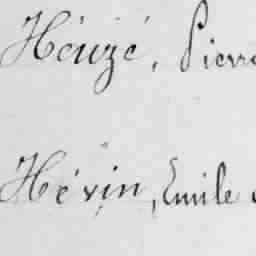 Héuzé, Pierre
Hévin, Emile